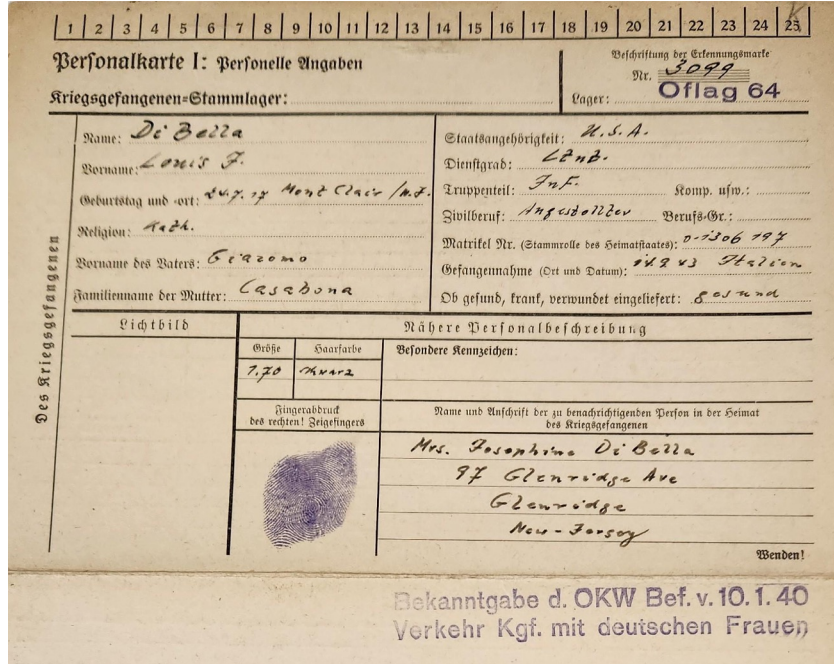 1 2 3 4 5 6 7 8 9 10 11 12 13 14 15 16 17 18 19 20 21 22 23 24 25
Personalkarte I: Personelle Angaben
Beschriftung der Erkennungsmarke
Nr. 3099
Kriegsgefangenen=Stammlager:
Lager: Oflag 64
Des Kriegsgefangenen
Name: Di Bella
Vorname: Louis F.
Geburtstag und -ort: 24.7.17 Mont Clair /N.J.
Religion: Kath.
Vorname des Vaters: Giacomo
Familienname der Mutter: Casabona
Staatsangehörigkeit: U.S.A.
Dienstgrad: Ltnt.
Truppenteil: Inf. Komp. usw.:
Zivilberuf: Angestellter Berufs-Gr.:
Matrikel Nr. (Stammrolle des Heimatstaates): 0-1306 197
Gefangennahme (Ort und Datum): 14.9 43 Italien
Ob gesund, krank, verwundet eingeliefert: gesund
Lichtbild
Nähere Personalbeschreibung
Größe Haarfarbe
1.70
Besondere Kennzeichen:
Fingerabdruck
des rechten! Zeigefingers
Name und Anschrift der zu benachrichtigenden Person in der Heimat
des Kriegsgefangenen
Mrs. Josephine Di Bella
97 Glenridge Ave
Glenridge
New-Jersey
Wenden!
Bekanntgabe d. OKW Bef. v. 10.1.40
Verkehr Kgf. mit deutschen Frauen